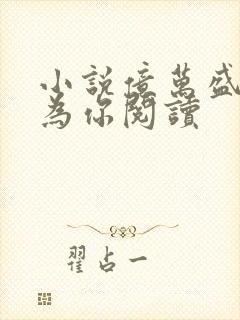 小說億萬盛
為你閱讀
翟占一